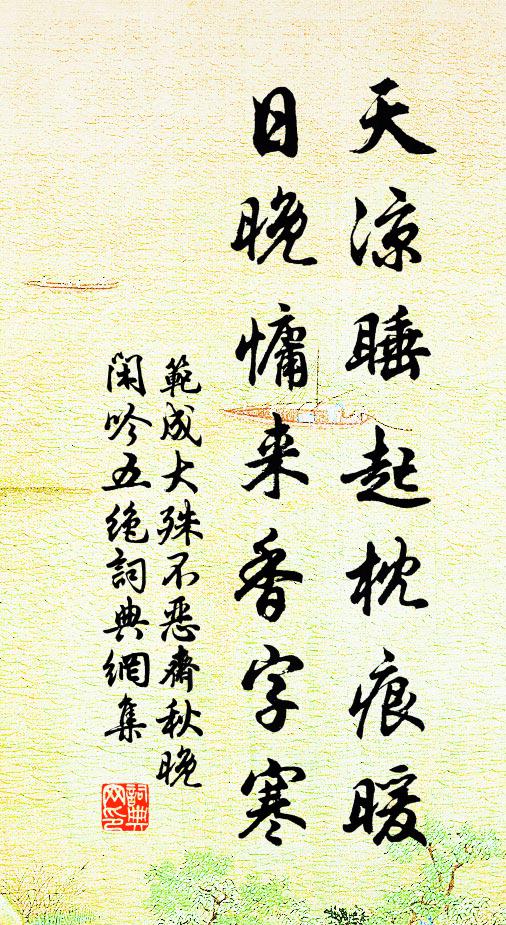 天凉睡起枕痕暖
日晚慵来香字寒
範成大殊不惡齋秋晚
閑吟五绝詞典網集
詞典网印